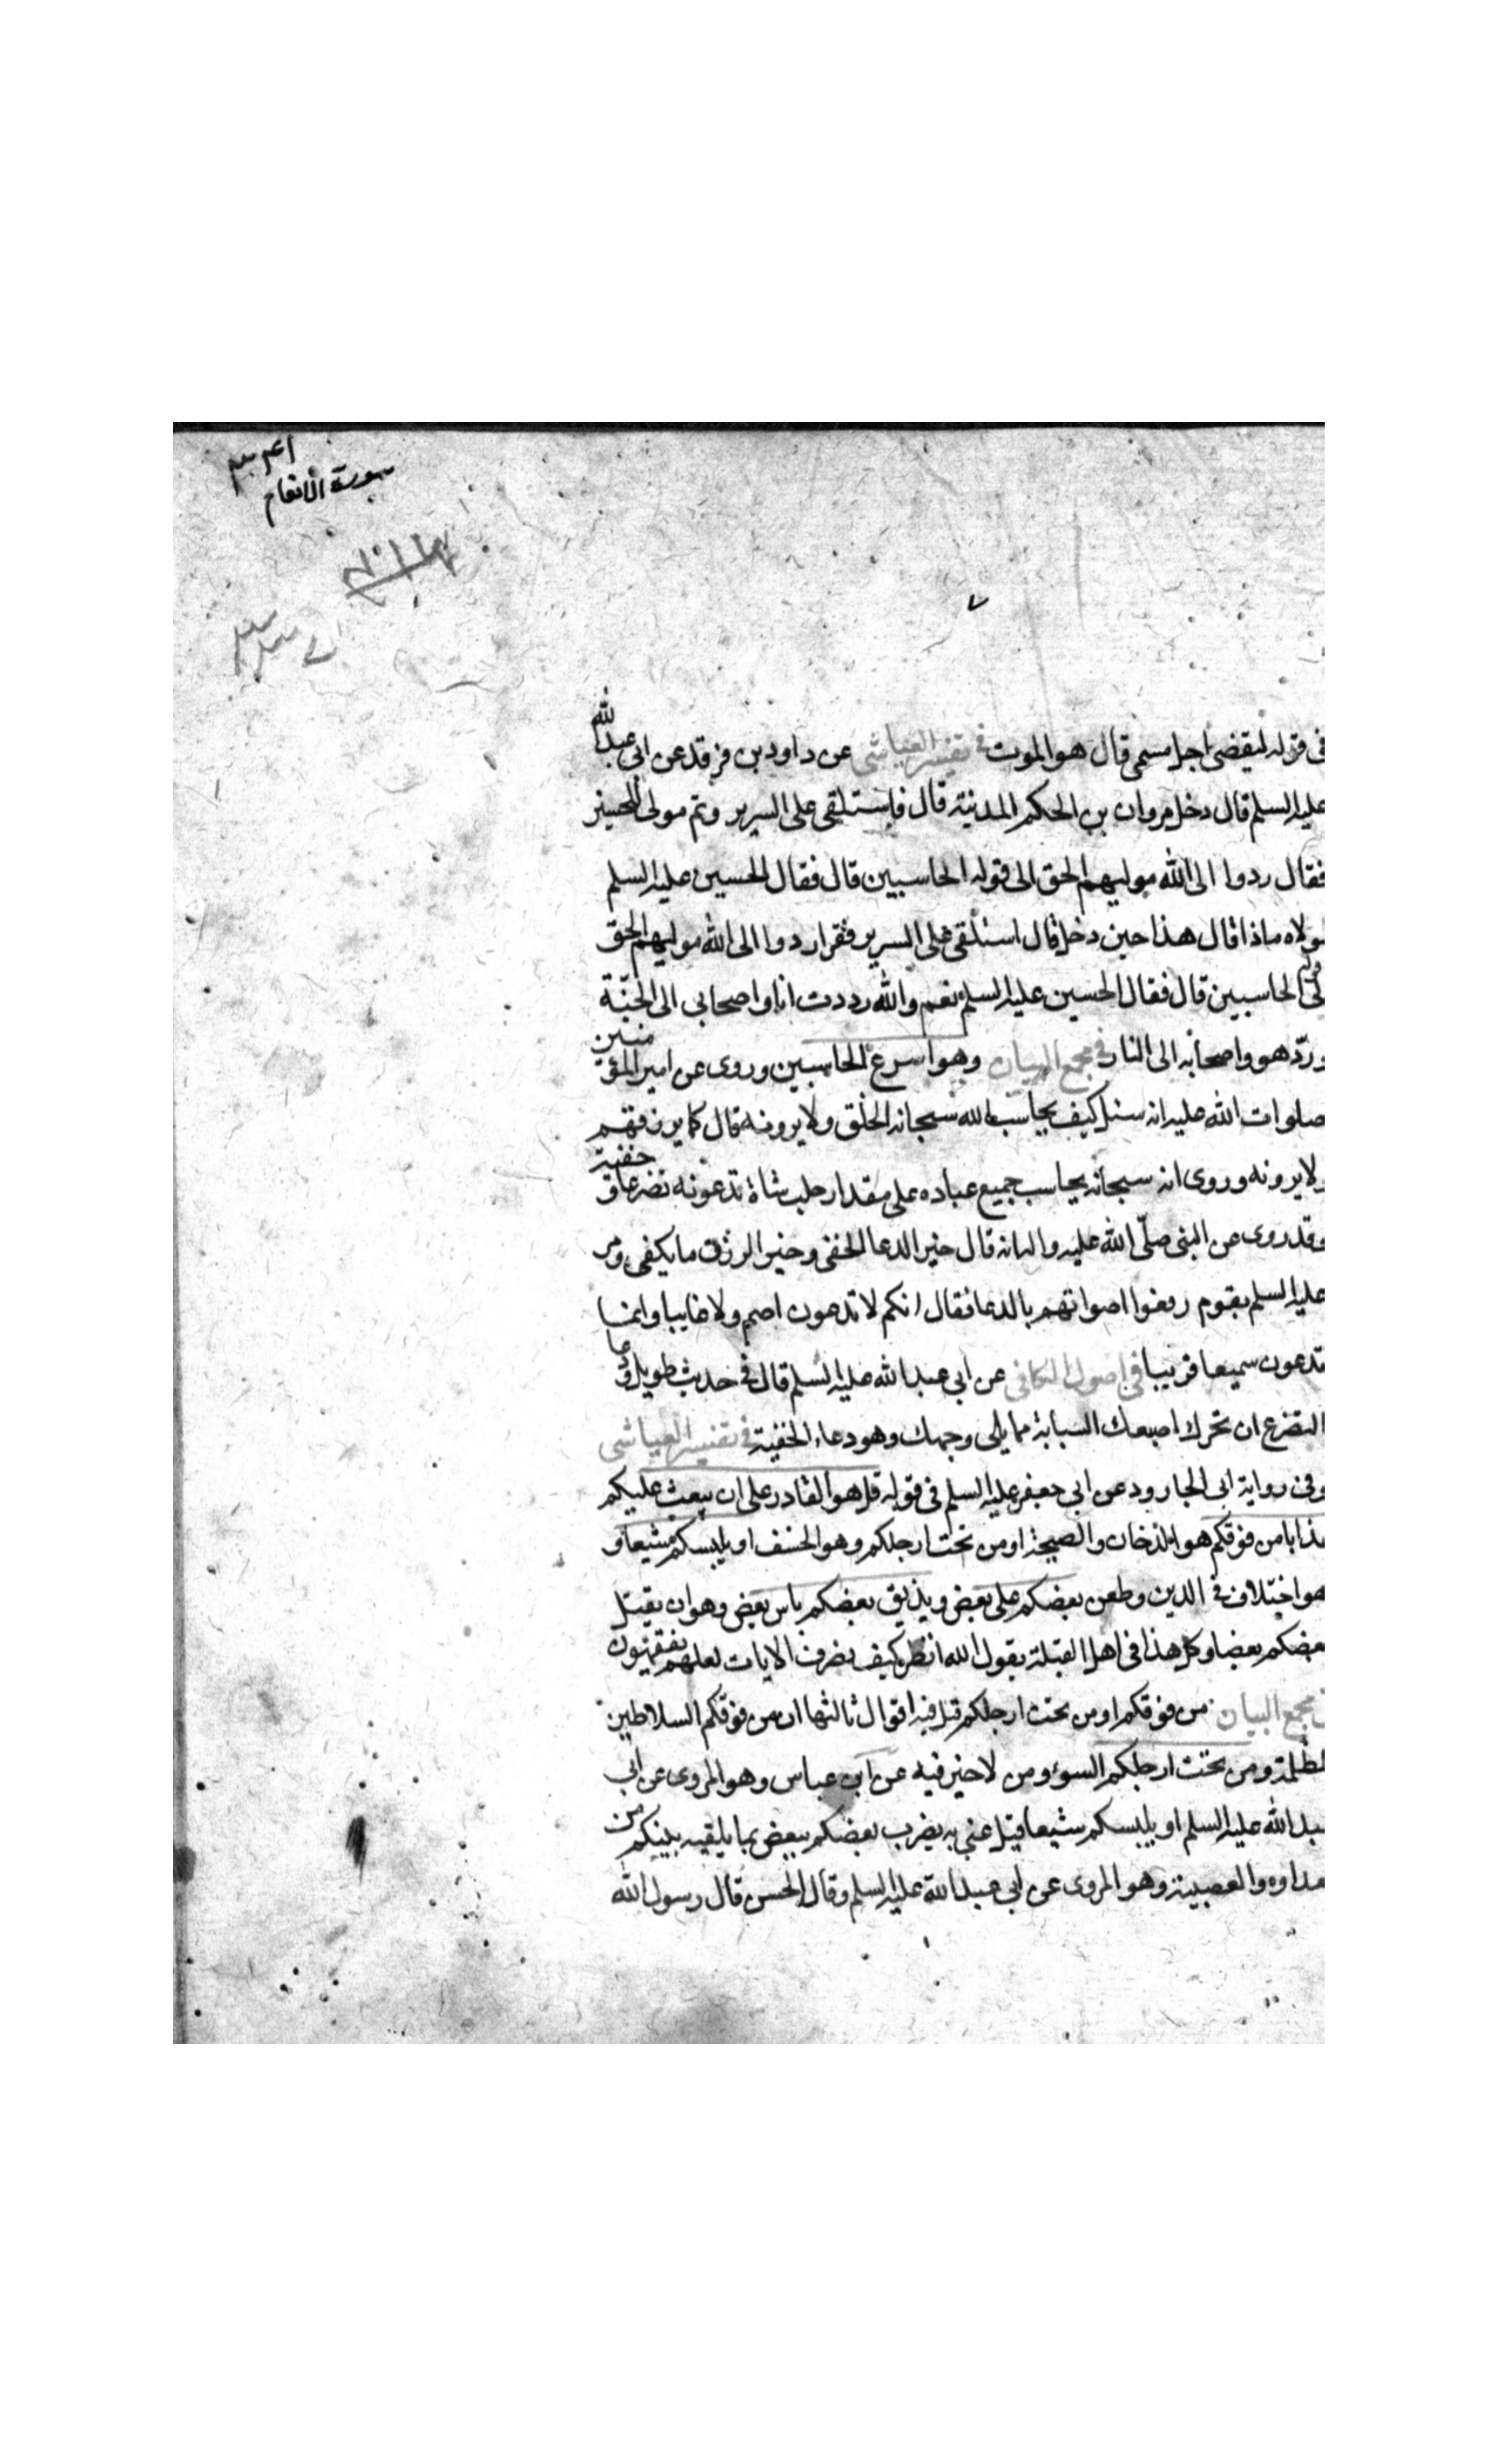 سورة الانعام
فى قوله ليقضى اجل مسمى قال هو الموت فى تفسير العياشى عن داود بن فرقد عن ابى عبد الله
عليه السلم قال دخل مروان بن الحكم المدينة قال فاستلقى على السرير وثم مولى للحسين
فقال ردوا الى الله موليهم الحق الى قوله الحاسبين قال فقال الحسين عليه السلم
لمولاه ماذا قال هذا حين دخل قال استلقى على السرير فقرا ردوا الى الله موليهم الحق
الى قوله الحاسبين قال فقال الحسين عليه السلم نعم والله رددت انا واصحابى الى الجنّة
وردّ هو واصحابه الى النار فى مجمع البيان وهو اسرع الحاسبين وروى عن امير المؤمنين
صلوات الله عليه انه سئل كيف يحاسب الله سبحانه الخلق ولا يرونه قال كما يرزقهم
ولا يرونه وروى انه سبحانه يحاسب جميع عباده على مقدار حلب شاة تدعونه تضرعا وخفية
وقد روى عن النبى صلّى الله عليه واله انه قال خير الدعا الخفى وخير الرزق ما يكفى ومر
عليه السلم بقوم رفعوا اصواتهم بالدعا فقال انكم لا تدعون اصم ولا غايبا وانما
تدعون سميعا قريبا فى اصول الكافى عن ابى عبد الله عليه السلم قال فى حديث طويل وما
التضرع ان تحرك اصبعك السبابة مما يلى وجهك وهو دعاء الخفية فى تفسير العياشى
وفى رواية ابى الجارود عن ابى جعفر عليه السلم فى قوله قل هو القادر على ان يبعث عليكم
عذابا من فوقكم هو الدخان والصيحة او من تحت ارجلكم وهو الخسف او يلبسكم شيعا و
هو اختلاف فى الدين وطعن بعضكم على بعض ويذيق بعضكم باس بعض وهو ان يقتل
بعضكم بعضا وكل هذا فى اهل القبلة يقول الله انظر كيف نصرف الايات لعلهم يفقهون
فى مجمع البيان من فوقكم او من تحت ارجلكم قيل فيه اقوال ثالثها ان من فوقكم السلاطين
الظلمة ومن تحت ارجلكم السوء ومن لا خير فيه عن ابن عباس وهو المروى عن ابى
عبد الله عليه السلم او يلبسكم شيعا قيل عنى به يضرب بعضكم ببعض بما يلقيه بينكم من
العداوه والعصبية وهو المروى عن ابى عبد الله عليه السلم وقال الحسن قال رسول الله